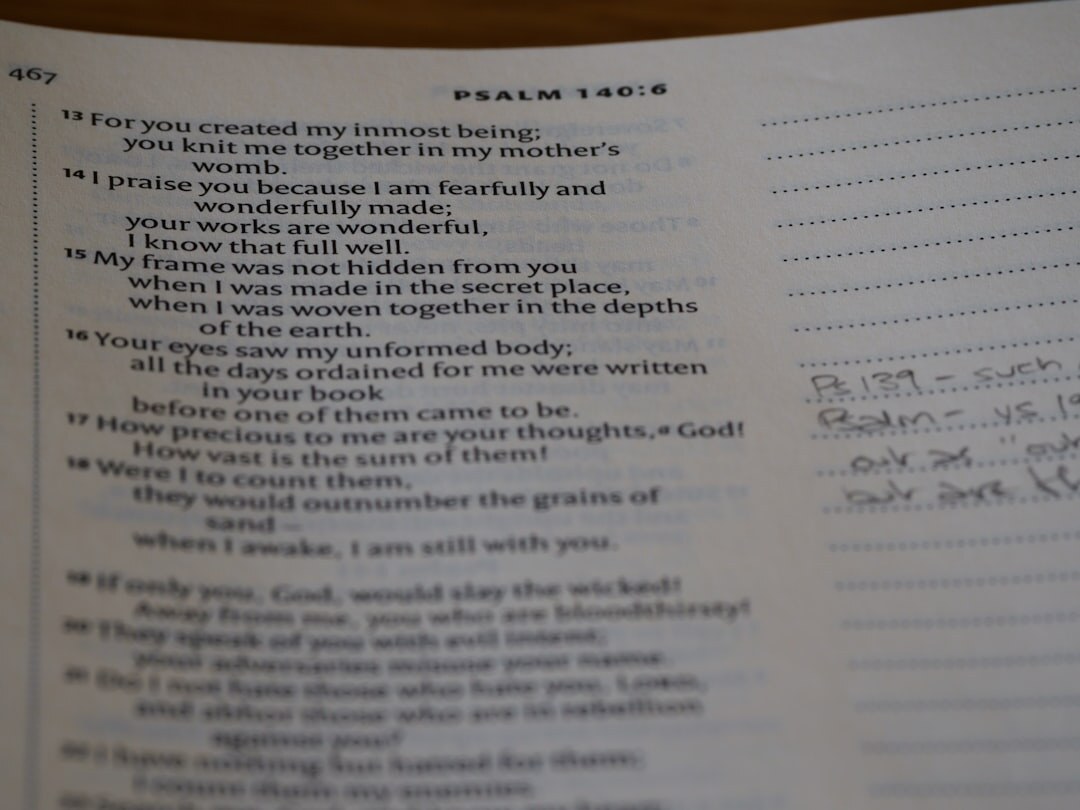 467
PSALM 140:6
13 For you created my inmost being;
you knit me together in my mother's
womb.
14 I praise you because I am fearfully and
wonderfully made;
your works are wonderful,
I know that full well.
15 My frame was not hidden from you
when I was made in the secret place,
when I was woven together in the depths
of the earth.
16 Your eyes saw my unformed body;
all the days ordained for me were written
in your book
before one of them came to be.
17 How precious to me are your thoughts,a God!
How vast is the sum of them!
18 Were I to count them,
they would outnumber the grains of
sand –
when I awake, I am still with you.
19 If only you, God, would slay the wicked!
Away from me, you who are bloodthirsty!
20 They speak of you with evil intent;
your adversaries misuse your name.
21 Do I not hate those who hate you, LORD,
and abhor those who are in rebellion
against you?
22 I have nothing but hatred for them;
I count them my enemies.
Ps 139 – such
Psalm – vs 19
out as "our
but are th